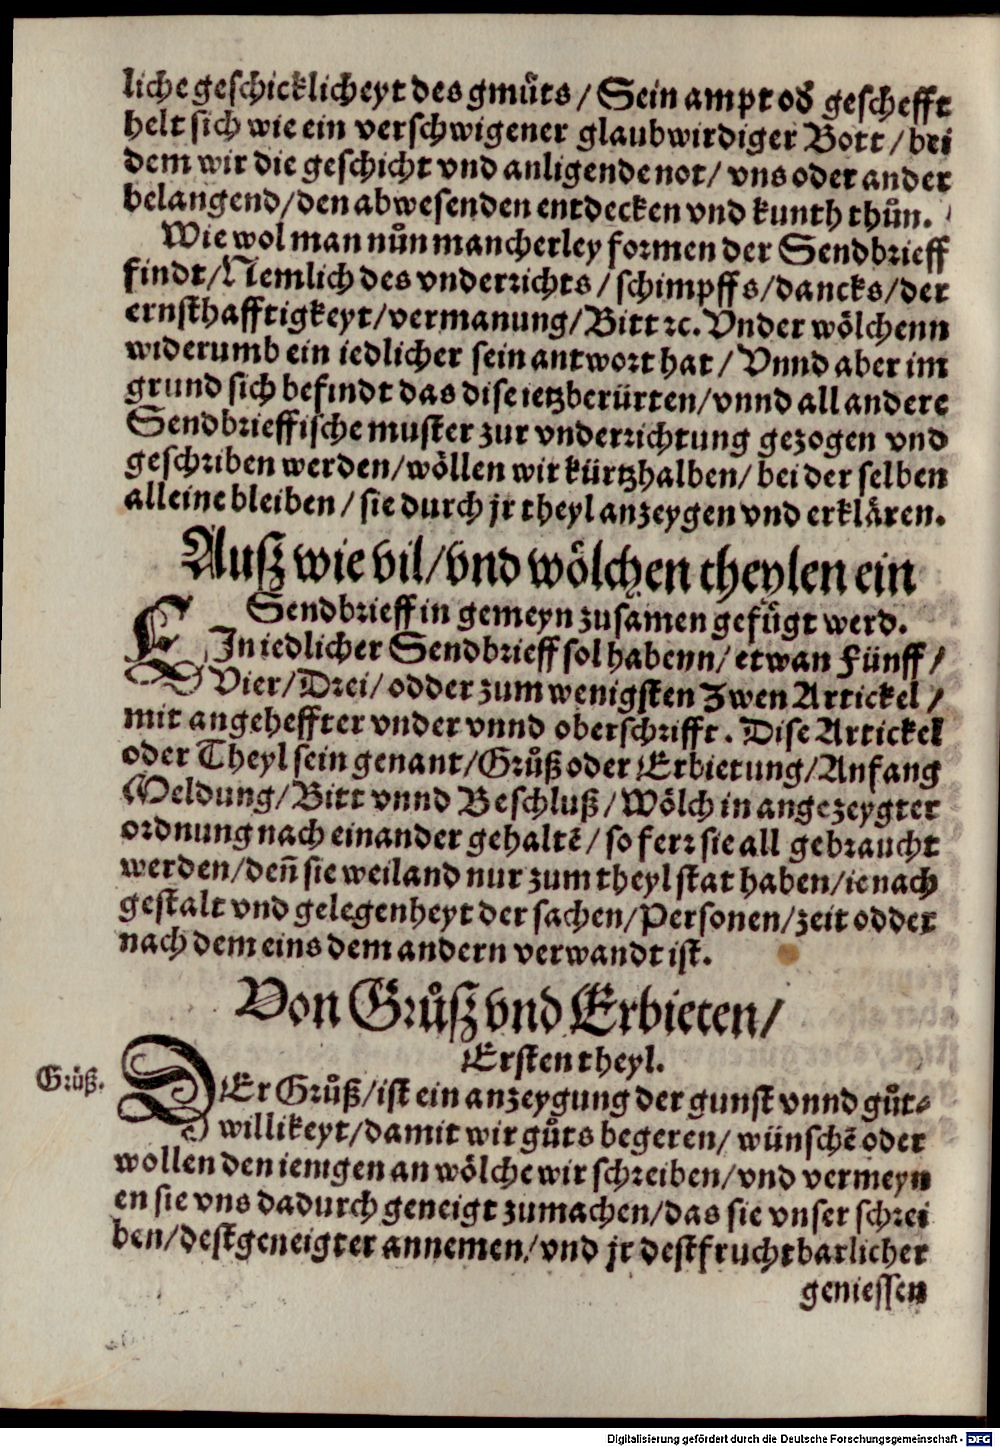 liche geschicklicheyt des gmůts / Sein ampt od geschefft
helt sich wie ein verschwigener glaubwirdiger Bott / bei
dem wir die geschicht vnd anligende not / vns oder ander
belangend / den abwesenden entdecken vnd kunth thůn.
Wie wol man nůn mancherley formen der Sendbrieff
findt / Nemlich des vnderrichts / schimpffs / dancks / der
ernsthafftigkeyt / vermanung / Bitt ꝛc. Vnder wölchenn
widerumb ein iedlicher sein antwort hat / Vnnd aber im
grund sich befindt das dise ietzberürten / vnnd all andere
Sendbrieffische muster zur vnderrichtung gezogen vnd
geschriben werden / wöllen wir kürtzhalben / bei der selben
alleine bleiben / sie durch jr theyl anzeygen vnd erklären.
Außz wie vil / vnd wölchen theylen ein
Sendbrieff in gemeyn zusamen gefůgt werd.
EJn iedlicher Sendbrieff sol habenn / etwan Fünff /
Vier / Drei / odder zum wenigsten Zwen Artickel /
mit angeheffter vnder vnnd oberschrifft. Dise Artickel
oder Theyl sein genant / Grůß oder Erbietung / Anfang
Meldung / Bitt vnnd Beschluß / Wölch in angezeygter
ordnung nach einander gehaltē / so ferr sie all gebraucht
werden / den̄ sie weiland nur zum theyl stat haben / ie nach
gestalt vnd gelegenheyt der sachen / Personen / zeit odder
nach dem eins dem andern verwandt ist.
Von Grůßz vnd Erbieten /
Ersten theyl.
Grůß.
DEr Grůß / ist ein anzeygung der gunst vnnd gůt⸗
willikeyt / damit wir gůts begeren / wünschē oder
wollen den ienigen an wölche wir schreiben / vnd vermeyn
en sie vns dadurch geneigt zumachen / das sie vnser schrei
ben / dest geneigter annemen / vnd jr dest fruchtbarlicher
geniessen
Digitalisierung gefördert durch die Deutsche Forschungsgemeinschaft - DFG